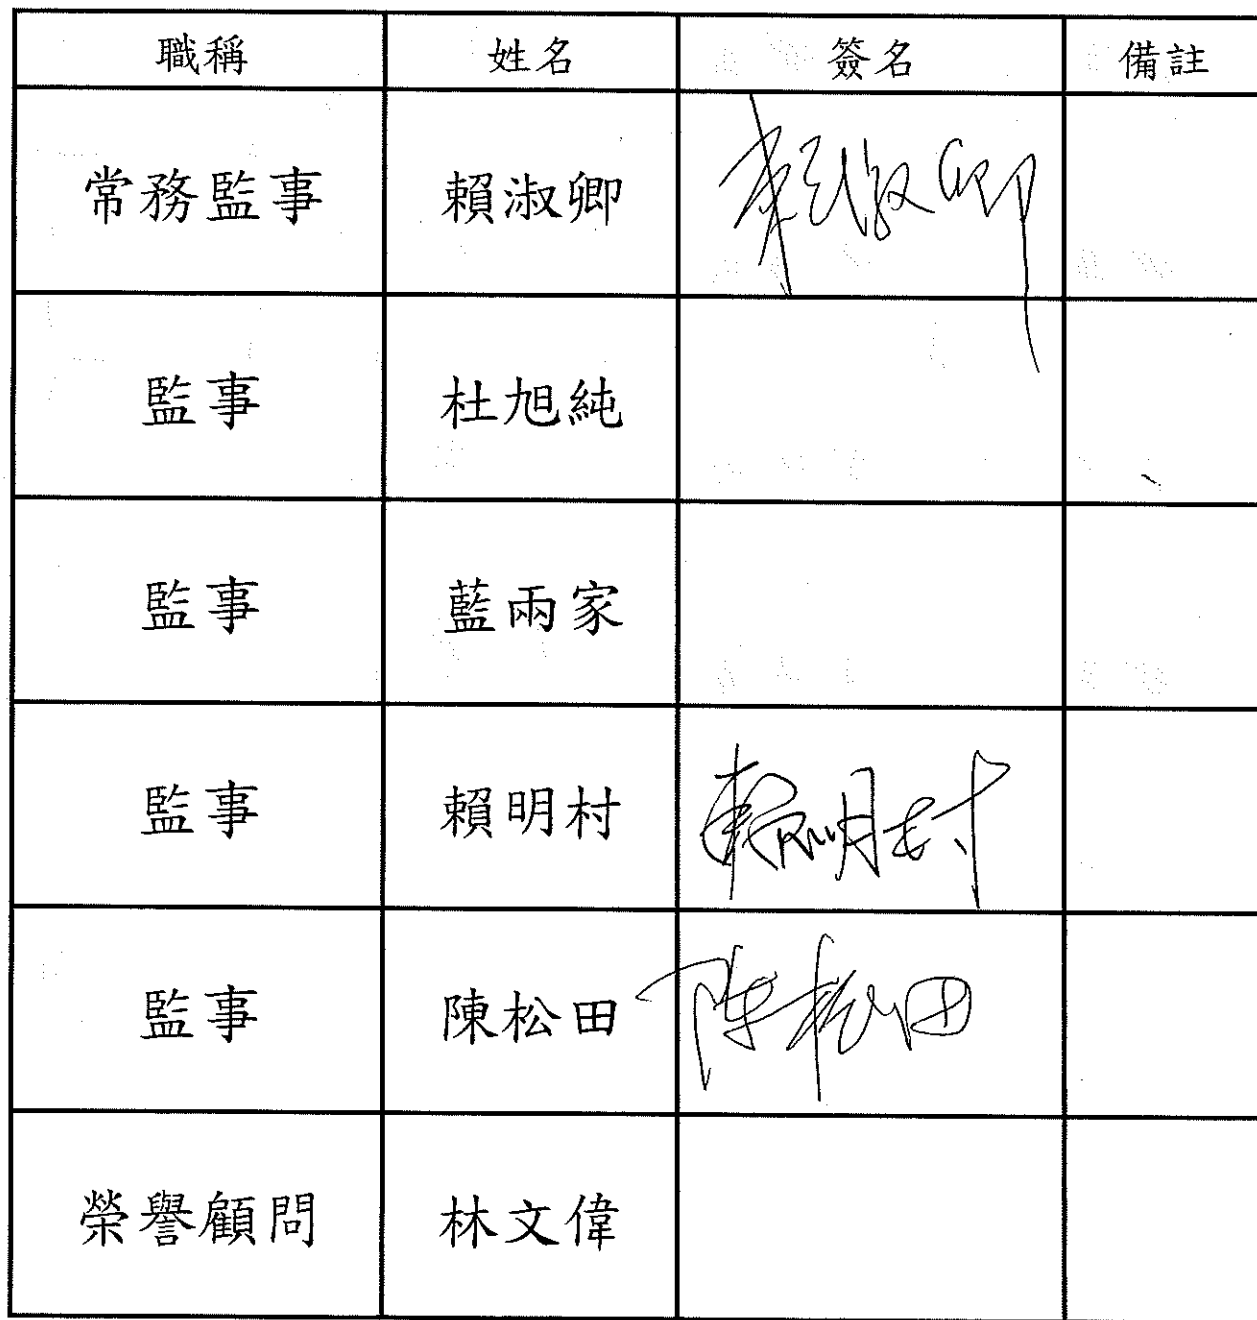 職稱 姓名 簽名 備註
常務監事 賴淑卿 賴淑卿
監事 杜旭純
監事 藍兩家
監事 賴明村 賴明村
監事 陳松田 陳松田
榮譽顧問 林文偉